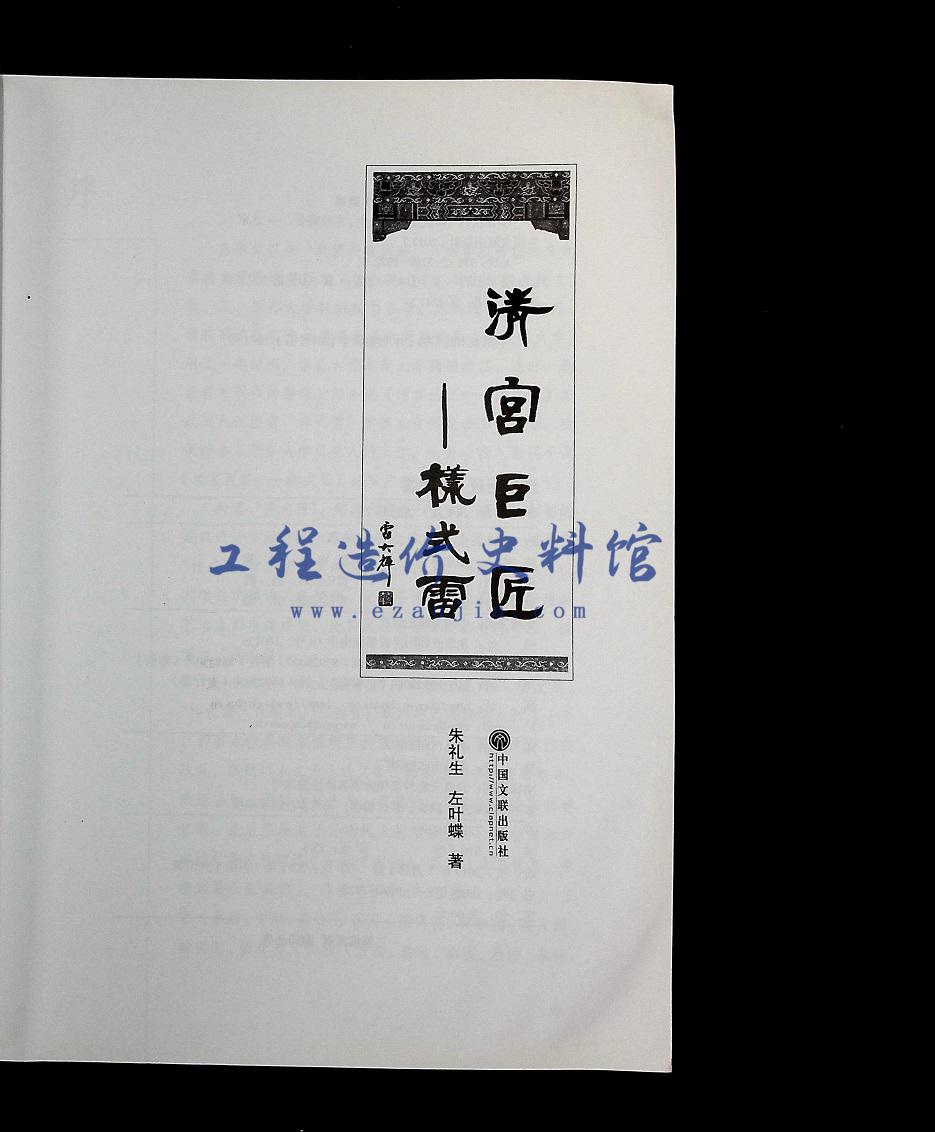 清宫巨匠
—樣式雷
雷大輝
工程造价史料馆
www.ezaojia.com
朱礼生 左叶蝶 著
中国文联出版社
http://www.clapnet.cn